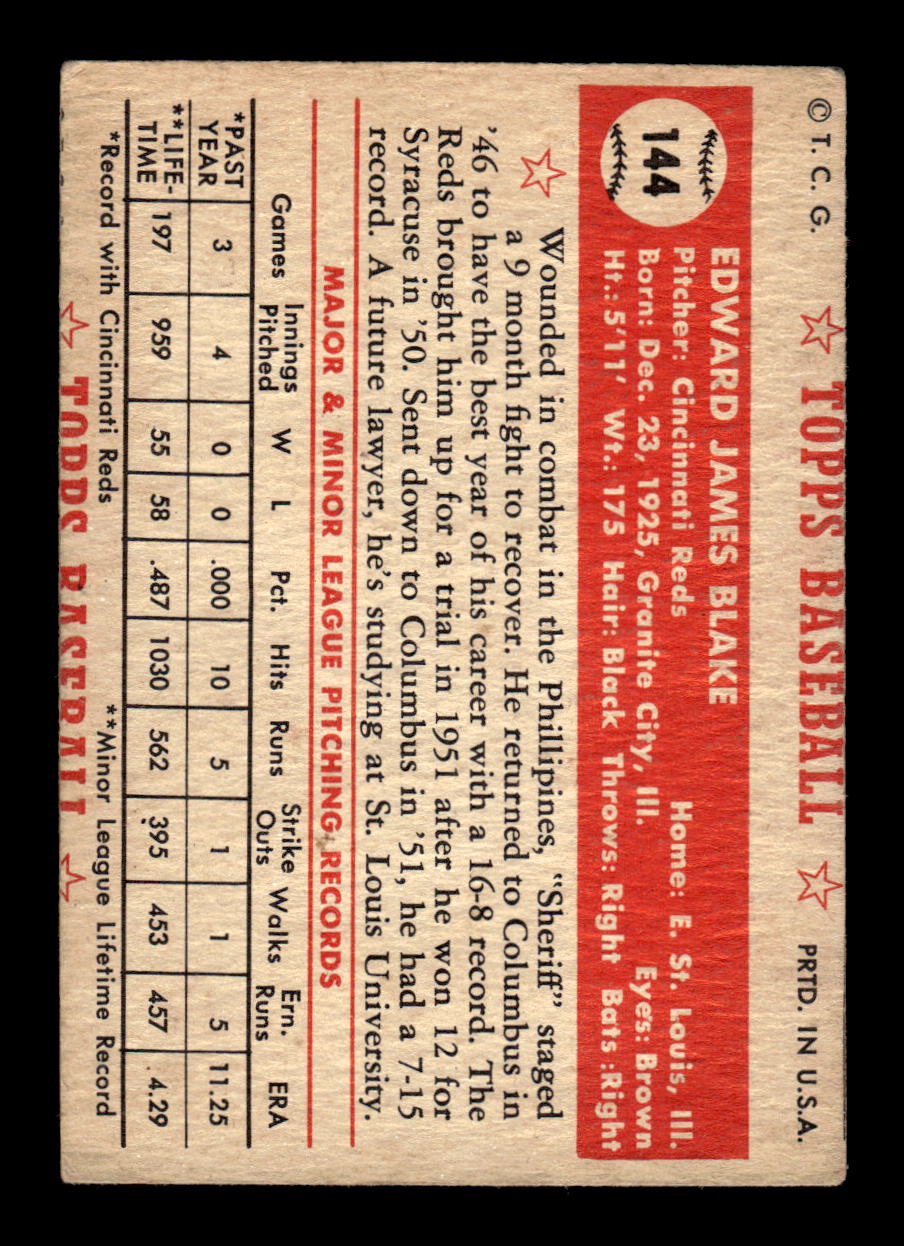 © T. C. G. TOPPS BASEBALL PRTD. IN U.S.A.
144
EDWARD JAMES BLAKE
Pitcher: Cincinnati Reds Home: E. St. Louis, Ill.
Born: Dec. 23, 1925, Granite City, Ill. Eyes: Brown
Ht.: 5'11' Wt.: 175 Hair: Black Throws: Right Bats :Right
Wounded in combat in the Phillipines, “Sheriff” staged
a 9 month fight to recover. He returned to Columbus in
’46 to have the best year of his career with a 16-8 record. The
Reds brought him up for a trial in 1951 after he won 12 for
Syracuse in ’50. Sent down to Columbus in ’51, he had a 7-15
record. A future lawyer, he’s studying at St. Louis University.
MAJOR & MINOR LEAGUE PITCHING RECORDS
Games Innings Pitched W L Pct. Hits Runs Strike Outs Walks Ern. Runs ERA
*PAST YEAR 3 4 0 0 .000 10 5 1 1 5 11.25
**LIFE-TIME 197 959 55 58 .487 1030 562 395 453 457 4.29
*Record with Cincinnati Reds **Minor League Lifetime Record
TOPPS BASEBALL